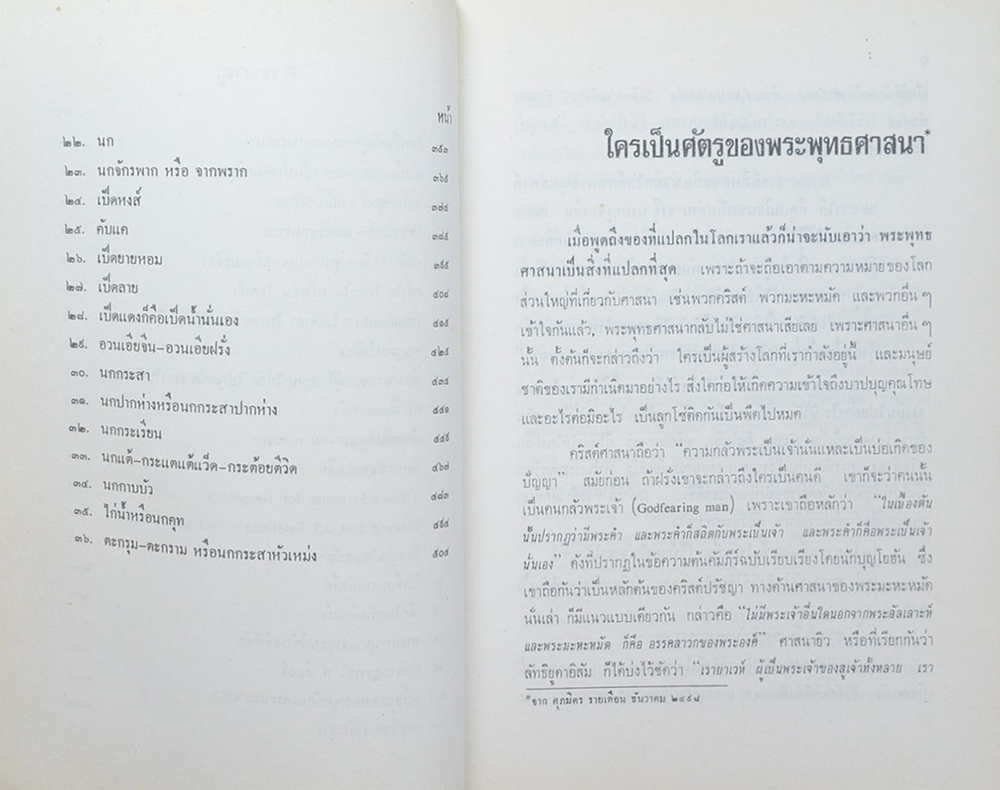 หน้า
๒๒. นก ๓๕๓
๒๓. นกจักรพาก หรือ จากพราก ๓๖๕
๒๔. เป็ดหงส์ ๓๗๕
๒๕. คับแค ๓๘๕
๒๖. เป็ดยายหอม ๓๙๕
๒๗. เป็ดลาย ๔๐๘
๒๘. เป็ดแดงก็คือเป็ดน้ำนั่นเอง ๔๑๕
๒๙. อวนเอียจีน-อวนเอียฝรั่ง ๔๒๕
๓๐. นกกระสา ๔๓๔
๓๑. นกปากห่างหรือนกกระสาปากห่าง ๔๔๑
๓๒. นกกระเรียน ๔๔๕
๓๓. นกแต้-กระแตแต้แว็ด-กระต้อยตีวิด ๔๖๗
๓๔. นกกาบบัว ๔๘๓
๓๕. ไก่น้ำหรือนกคุท ๔๙๔
๓๖. ตะกรุม-ตะกราม หรือนกกระสาหัวเหม่ง ๕๐๔
ใครเป็นศัตรูของพระพุทธศาสนา*
เมื่อพูดถึงของที่แปลกในโลกเราแล้วก็น่าจะนับเอาว่า พระพุทธ
ศาสนาเป็นสิ่งที่แปลกที่สุด เพราะถ้าจะถือเอาตามความหมายของโลก
ส่วนใหญ่ที่เกี่ยวกับศาสนา เช่นพวกคริสต์ พวกมะหะหมัด และพวกอื่น ๆ
เข้าใจกันแล้ว, พระพุทธศาสนากลับไม่ใช่ศาสนาเสียเลย เพราะศาสนาอื่น ๆ
นั้น ตั้งต้นก็จะกล่าวถึงว่า ใครเป็นผู้สร้างโลกที่เรากำลังอยู่นี้ และมนุษย์
ชาติของเรามีกำเนิดมาอย่างไร สิ่งใดก่อให้เกิดความเข้าใจถึงบาปบุญคุณโทษ
และอะไรต่อมิอะไร เป็นลูกโซ่ติดกันเป็นพืดไปหมด
คริสต์ศาสนาถือว่า “ความกลัวพระเป็นเจ้านั่นแหละเป็นบ่อเกิดของ
ปัญญา” สมัยก่อน ถ้าฝรั่งเขาจะกล่าวถึงใครเป็นคนดี เขาก็จะว่าคนนั้น
เป็นคนกลัวพระเจ้า (Godfearing man) เพราะเขาถือหลักว่า “ในเบื้องต้น
นั้นปรากฏว่ามีพระคำ และพระคำก็สถิตกับพระเป็นเจ้า และพระคำก็คือพระเป็นเจ้า
นั่นเอง” ดังที่ปรากฏในข้อความต้นคัมภีร์ฉบับเรียบเรียงโดยนักบุญโยฮัน ซึ่ง
เขาถือกันว่าเป็นหลักต้นของคริสต์ปรัชญา ทางด้านศาสนาของพระมะหะหมัด
นั่นเล่า ก็มีแนวแบบเดียวกัน กล่าวคือ “ไม่มีพระเจ้าอื่นใดนอกจากพระอัลเลาะห์
และพระมะหะหมัด ก็คือ อรรคสาวกของพระองค์” ศาสนายิว หรือที่เรียกกันว่า
ลัทธิยูดาอิสม ก็ได้บ่งไว้ชัดว่า “เรายาเวห์ ผู้เป็นพระเจ้าของสูเจ้าทั้งหลาย เรา
*จาก ศุภมิตร รายเดือน ธันวาคม ๒๔๙๘